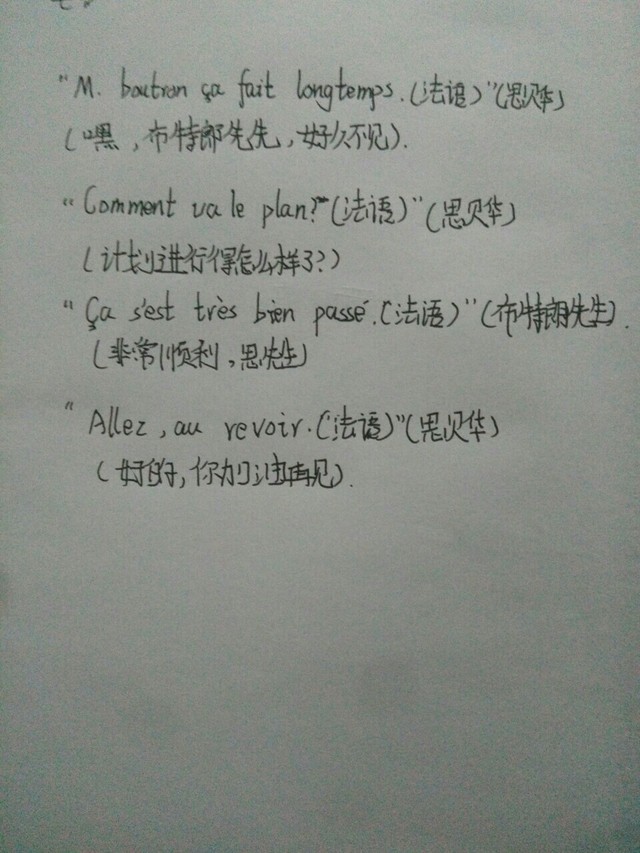 "M. boutron ça fait longtemps.(法语)"(思贝华)
(嘿,布特郎先先,好久不见).
"Comment va le plan?"(法语)"(思贝华)
(计划进行得怎么样了?)
"Ça s'est très bien passé.(法语)"(布特朗先生).
(非常顺利,思先生)
"Allez, au revoir.(法语)"(思贝华)
(好的,你加油再见).